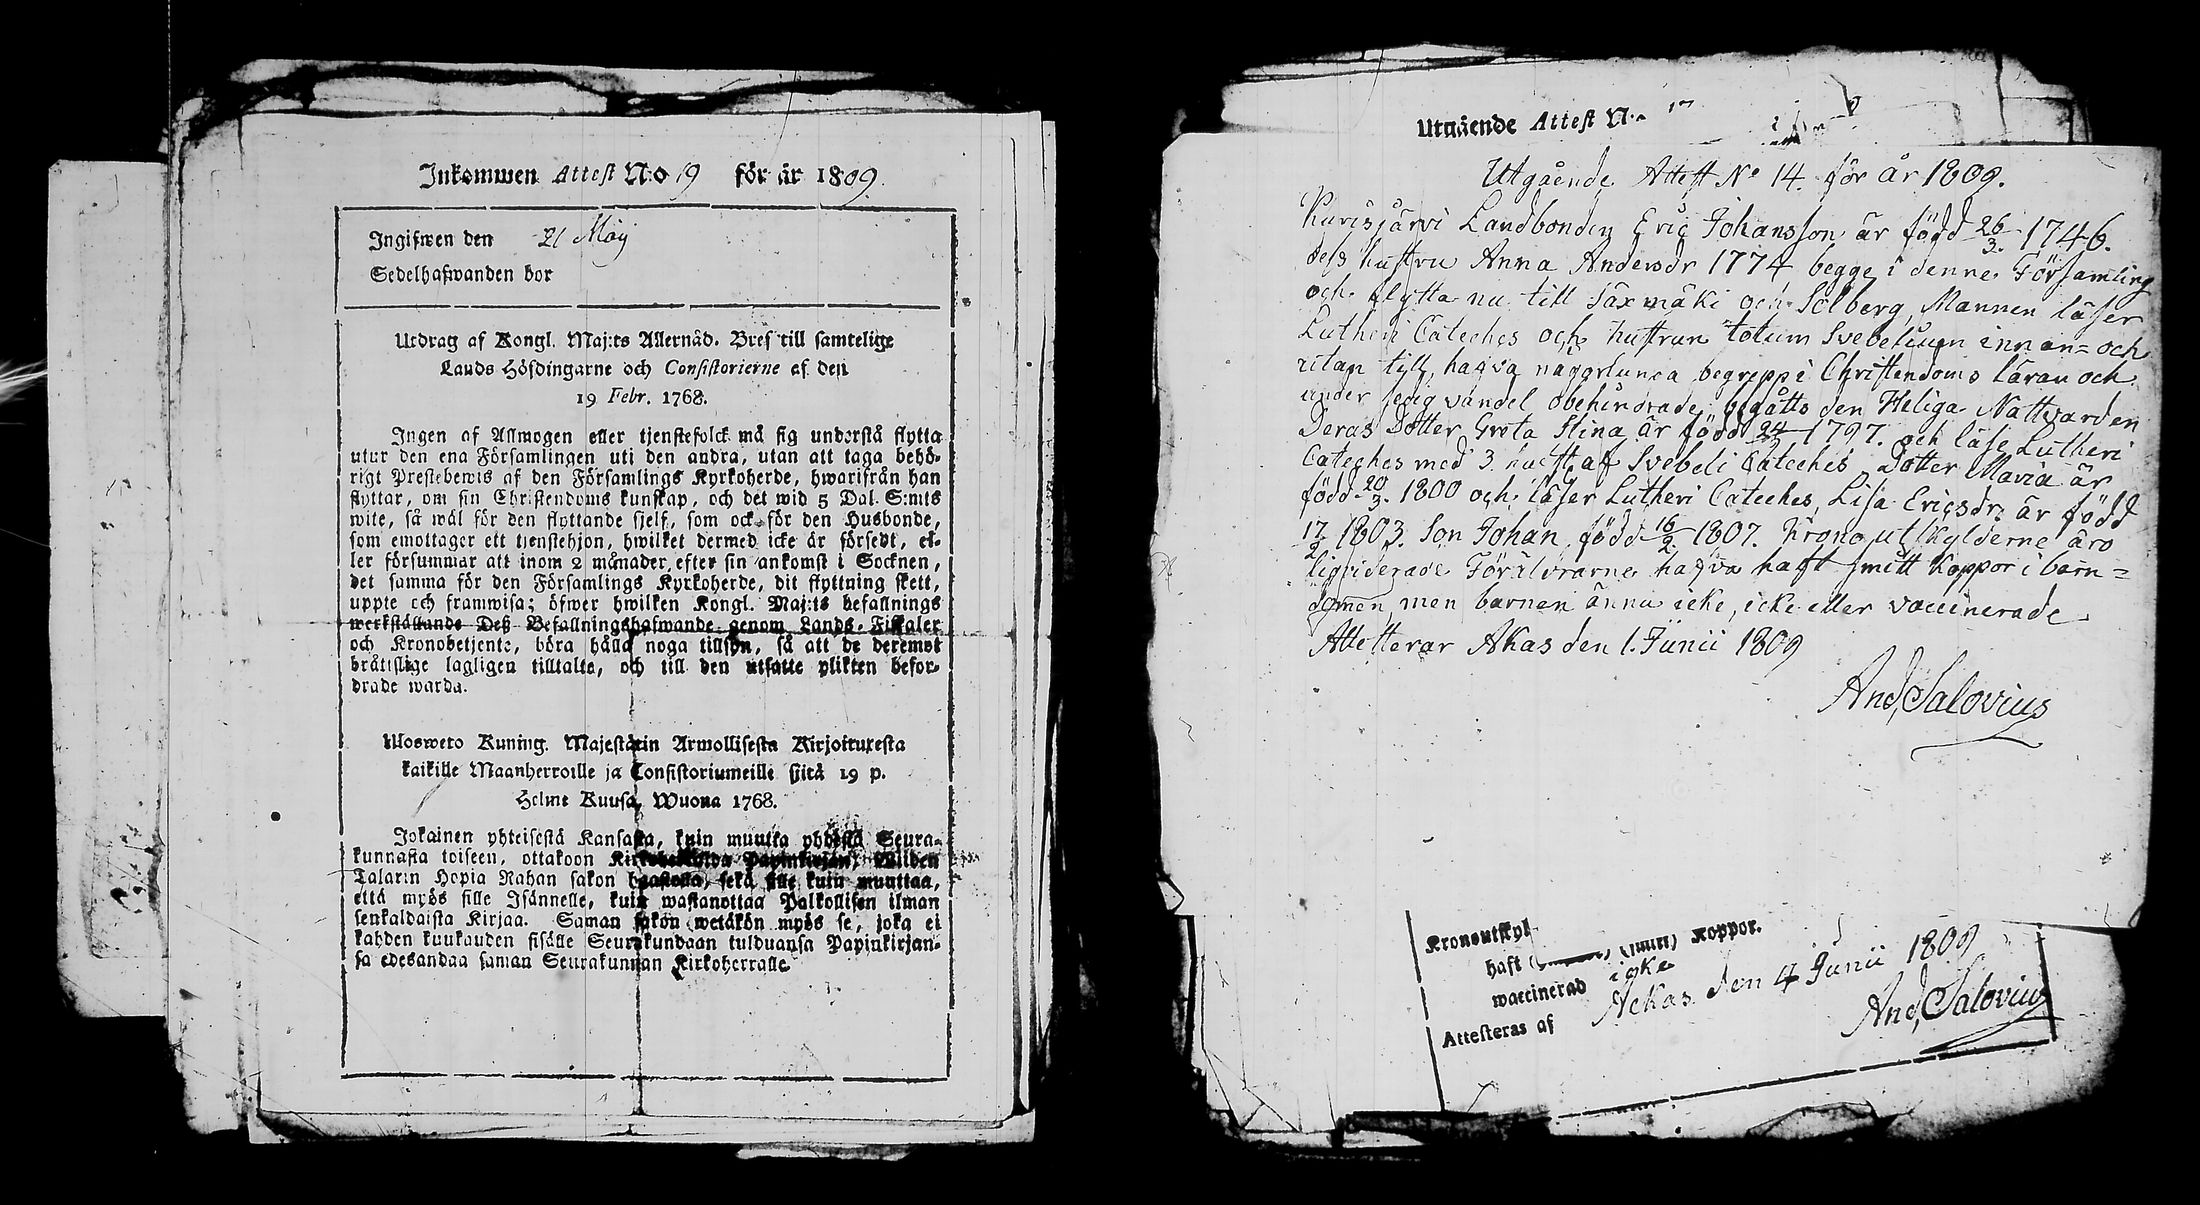 Inkommen Attest N:o 19 för år 1809.
Ingifwen den 21 Maij
Sedelhafwanden bor
Utdrag af Kongl. Maj:ts Allernåd. Bref till samtelige
Lands Höfdingarne och Consistorierne af den
19 Febr. 1768.
Ingen af Allmogen eller tjenstefolck må sig understå flytta
utur den ena Församlingen uti den andra, utan att taga behö-
rigt Prestebewis af den Församlings Kyrkoherde, hwarifrån han
flyttar, om sin Christendoms kunskap, och det wid 5 Dal. S:mts
wite, så wäl för den flyttande sjelf, som ock för den Husbonde,
som emottager ett tjenstehjon, hwilket dermed icke är försedt, el-
ler försummar att inom 2 månader efter sin ankomst i Socknen,
det samma för den Församlings Kyrkoherde, dit flyttning skett,
uppte och framwisa; öfwer hwilken Kongl. Maj:ts befallnings
werkställande Deß Befallningshafwande genom Lands-Fiskaler
och Kronobetjente, böra hålla noga tillsyn, så att de deremot
bråtislige lagligen tilltalte, och till den utsatte plikten befor-
drade warda.
Ulosweto Kuning. Majestätin Armollisesta Kirjoituxesta
kaikille Maanherroille ja Consistoriumeille siitä 19 p.
Helme Kuusa, Wuona 1768.
Jokainen yhteisestä Kansasta, kuin muutta yhdestä Seura-
kunnasta toiseen, ottakoon Kirkoherralda Papinkirjan, Wiiden
Talarin Hopia Rahan sakon haastolla, sekä sille kuin muuttaa,
että myös sille Isännelle, kuin wastanottaa Palkollisen ilman
senkaldaista Kirjaa. Saman sakon wetäkön myös se, joka ei
kahden kuukauden sisälle Seurakundaan tulduansa Papinkirjan-
sa edesandaa saman Seurakunnan Kirkoherralle.
Utgående Attest N:o 17
Utgående Attest No 14. för år 1809.
Kurisjärvi Landbonden Eric Johansson är född 26/3. 1746.
dess hustru Anna Andersdr 1774 begge i denne Församling
och flytta nu till Säxmäki och Solberg, Mannen läser
Lutheri Cateches och hustrun totum Svebelium innan- och
utan till, hafva någorlunda begrepp i Christendoms läran och
under ledig vandel obehindrade begåtts den Heliga Nattvarden
Deras Dotter Greta Stina är född 24 1797. och läse Lutheri
Cateches med 3. af Svebeli Cateches, Dotter Maria är
född 20/3. 1800 och läser Lutheri Cateches, Lisa Ericsdr. är född
17/2 1803. Son Johan född 16/2 1807. Kronoutskylderne äro
liqviderade Föräldrarne hafva haft smitt koppor i barn-
domen, men barnen ännu icke, icke eller vaccinerade
Attesterar Akas den 1. Junii 1809
And, Salovius
Kronoutskyl
haft (smitt) Koppor.
waccinerad icke
Attesteras af Ackas den 4 Junii 1809
And, Salovius